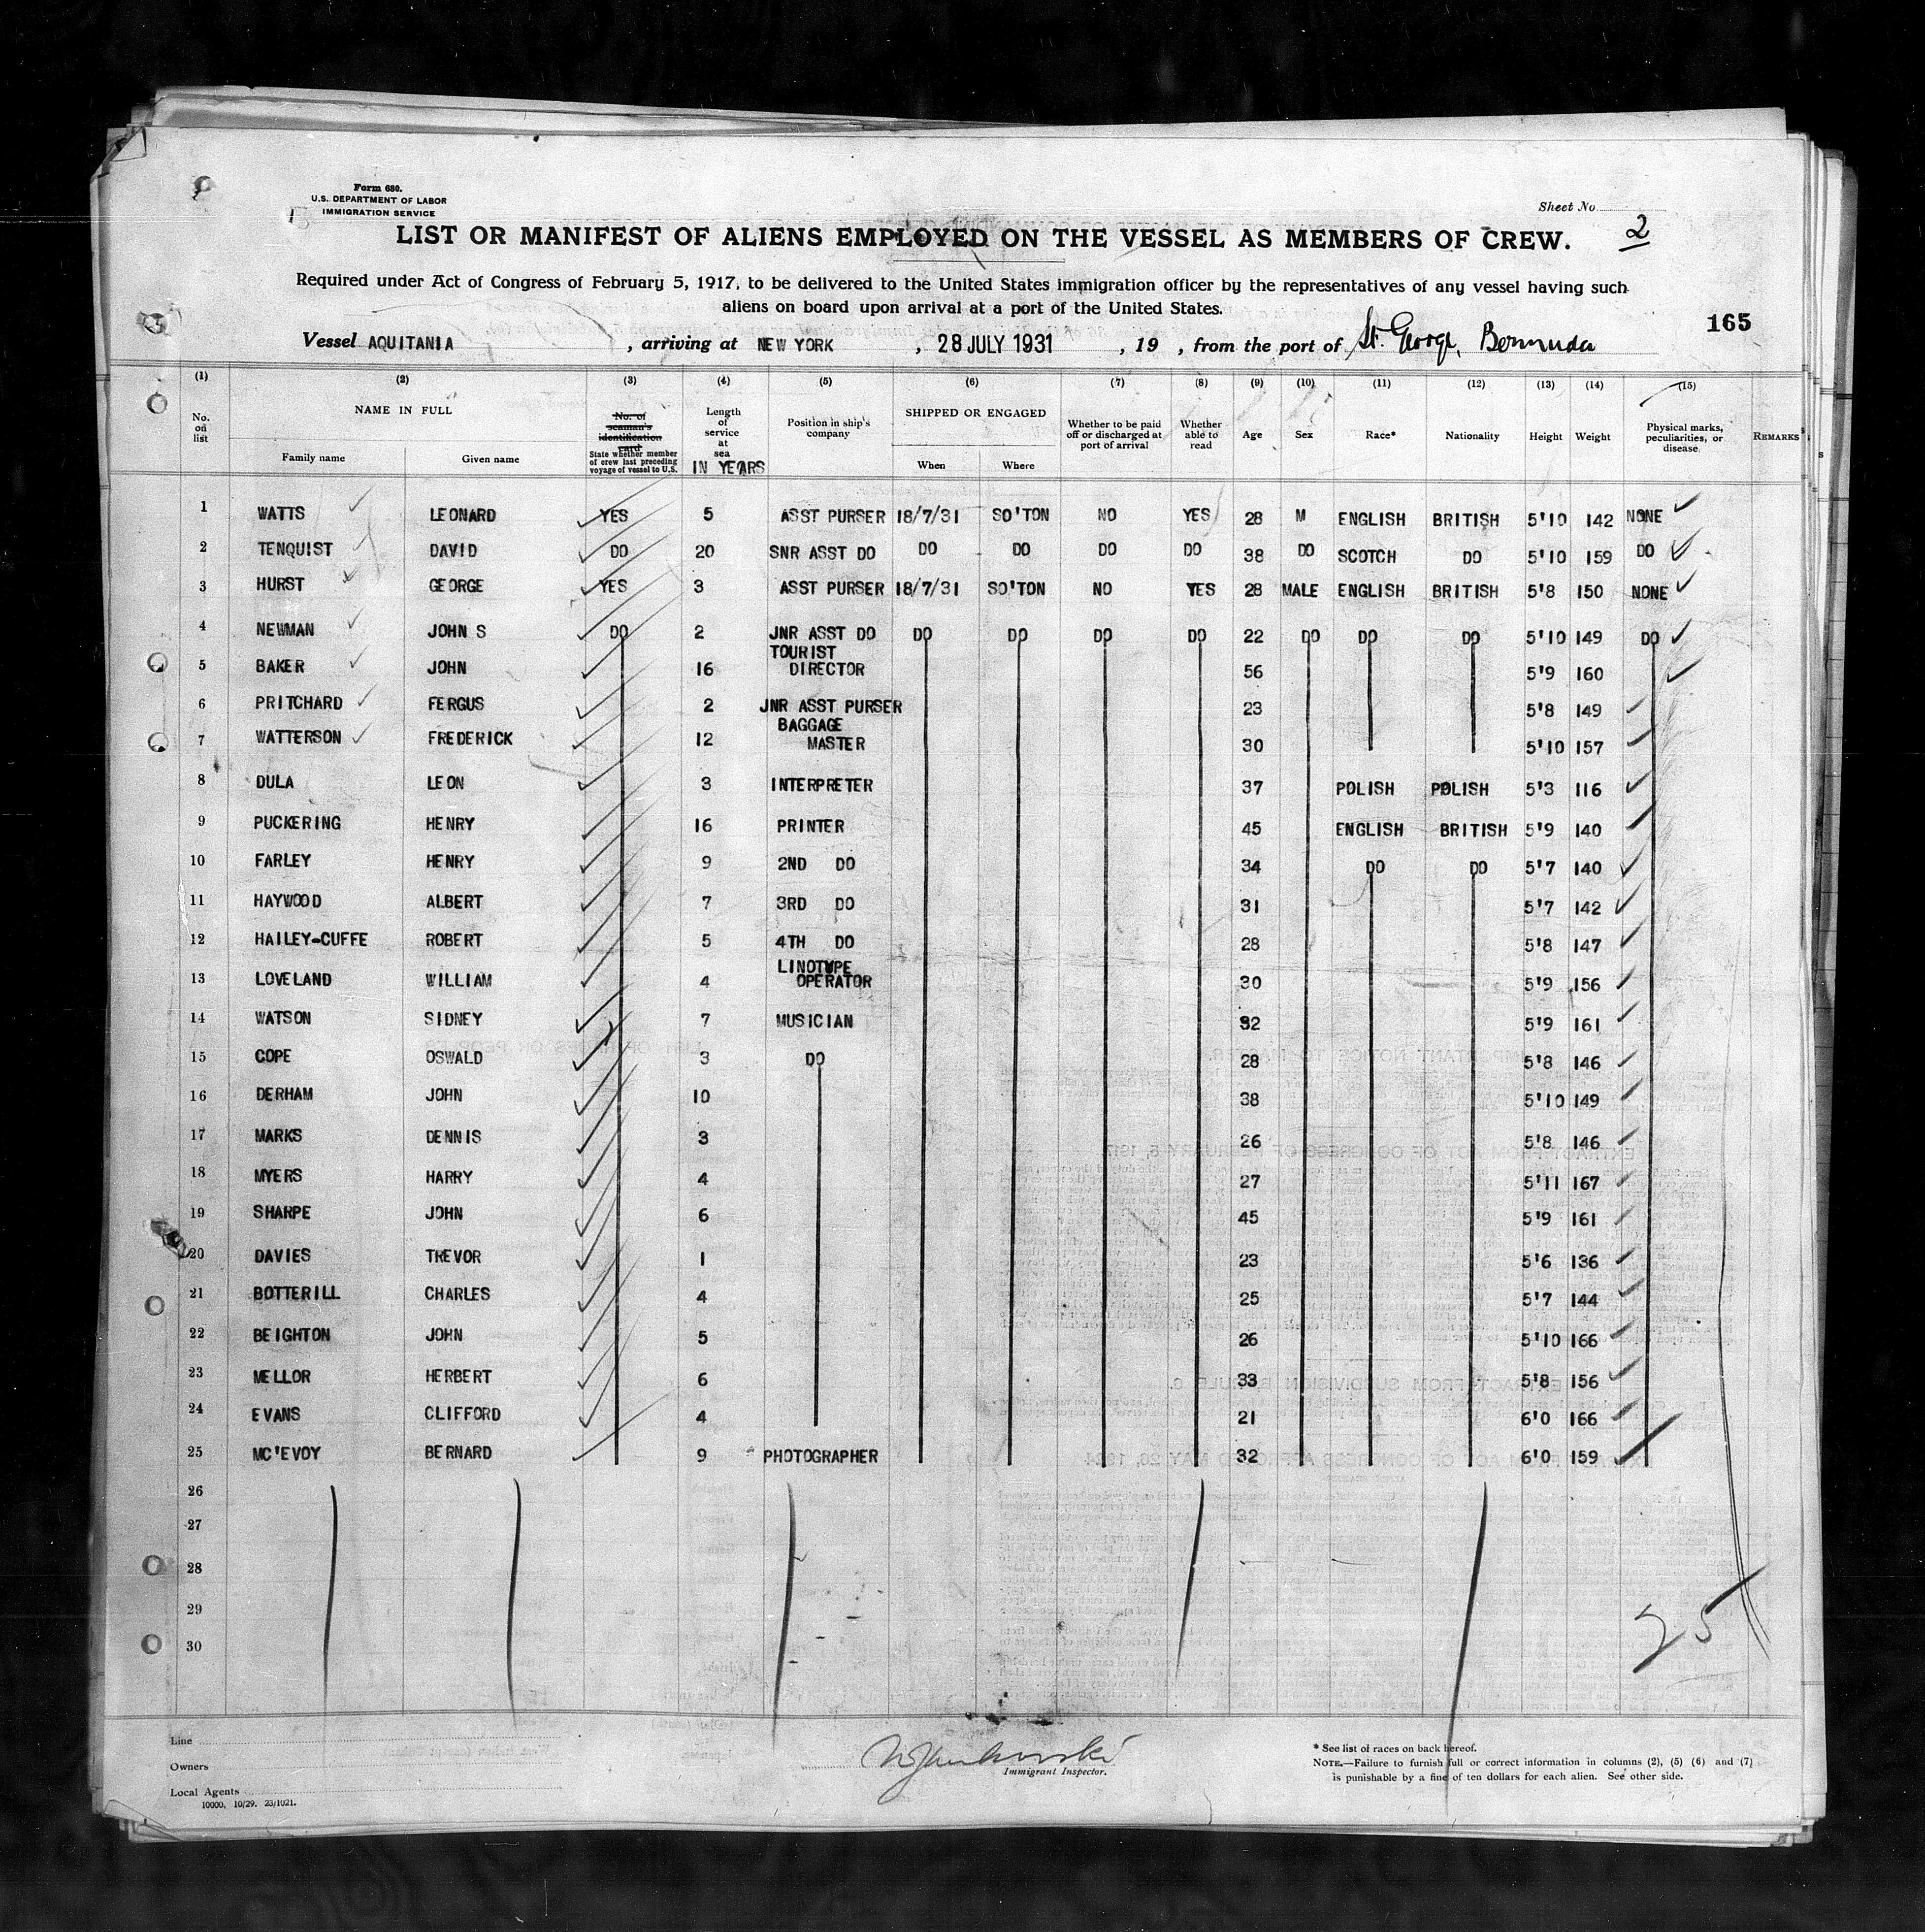 Form 680.
U.S. DEPARTMENT OF LABOR
IMMIGRATION SERVICE
Sheet No. 2
LIST OR MANIFEST OF ALIENS EMPLOYED ON THE VESSEL AS MEMBERS OF CREW.
Required under Act of Congress of February 5, 1917, to be delivered to the United States immigration officer by the representatives of any vessel having such
aliens on board upon arrival at a port of the United States.
165
Vessel AQUITANIA , arriving at NEW YORK , 28 JULY 1931 , 19 , from the port of St. George, Bermuda
(1) (2) (3) (4) (5) (6) (7) (8) (9) (10) (11) (12) (13) (14) (15)
No. on list
NAME IN FULL
Family name Given name
No. of seaman's identification card
State whether member of crew last preceding voyage of vessel to U.S.
Length of service at sea
IN YEARS
Position in ship's company
SHIPPED OR ENGAGED
When Where
Whether to be paid off or discharged at port of arrival
Whether able to read
Age Sex Race* Nationality Height Weight
Physical marks, peculiarities, or disease
REMARKS
1 WATTS LEONARD YES 5 ASST PURSER 18/7/31 SO'TON NO YES 28 M ENGLISH BRITISH 5'10 142 NONE
2 TENQUIST DAVID DO 20 SNR ASST DO DO DO DO DO 38 DO SCOTCH DO 5'10 159 DO
3 HURST GEORGE YES 3 ASST PURSER 18/7/31 SO'TON NO YES 28 MALE ENGLISH BRITISH 5'8 150 NONE
4 NEWMAN JOHN S DO 2 JNR ASST DO DO DO DO DO 22 DO DO DO 5'10 149 DO
5 BAKER JOHN 16 TOURIST DIRECTOR 56 5'9 160
6 PRITCHARD FERGUS 2 JNR ASST PURSER 23 5'8 149
7 WATTERSON FREDERICK 12 BAGGAGE MASTER 30 5'10 157
8 DULA LEON 3 INTERPRETER 37 POLISH POLISH 5'3 116
9 PUCKERING HENRY 16 PRINTER 45 ENGLISH BRITISH 5'9 140
10 FARLEY HENRY 9 2ND DO 34 DO DO 5'7 140
11 HAYWOOD ALBERT 7 3RD DO 31 5'7 142
12 HAILEY-CUFFE ROBERT 5 4TH DO 28 5'8 147
13 LOVELAND WILLIAM 4 LINOTYPE OPERATOR 30 5'9 156
14 WATSON SIDNEY 7 MUSICIAN 32 5'9 161
15 COPE OSWALD 3 DO 28 5'8 146
16 DERHAM JOHN 10 38 5'10 149
17 MARKS DENNIS 3 26 5'8 146
18 MYERS HARRY 4 27 5'11 167
19 SHARPE JOHN 6 45 5'9 161
20 DAVIES TREVOR 1 23 5'6 136
21 BOTTERILL CHARLES 4 25 5'7 144
22 BEIGHTON JOHN 5 26 5'10 166
23 MELLOR HERBERT 6 33 5'8 156
24 EVANS CLIFFORD 4 21 6'0 166
25 MC'EVOY BERNARD 9 PHOTOGRAPHER 32 6'0 159
26
27
28
29
30
25
Line
Owners
Local Agents
10000, 10/29. 23/1021.
Immigrant Inspector.
* See list of races on back hereof.
NOTE.—Failure to furnish full or correct information in columns (2), (5) (6) and (7)
is punishable by a fine of ten dollars for each alien. See other side.